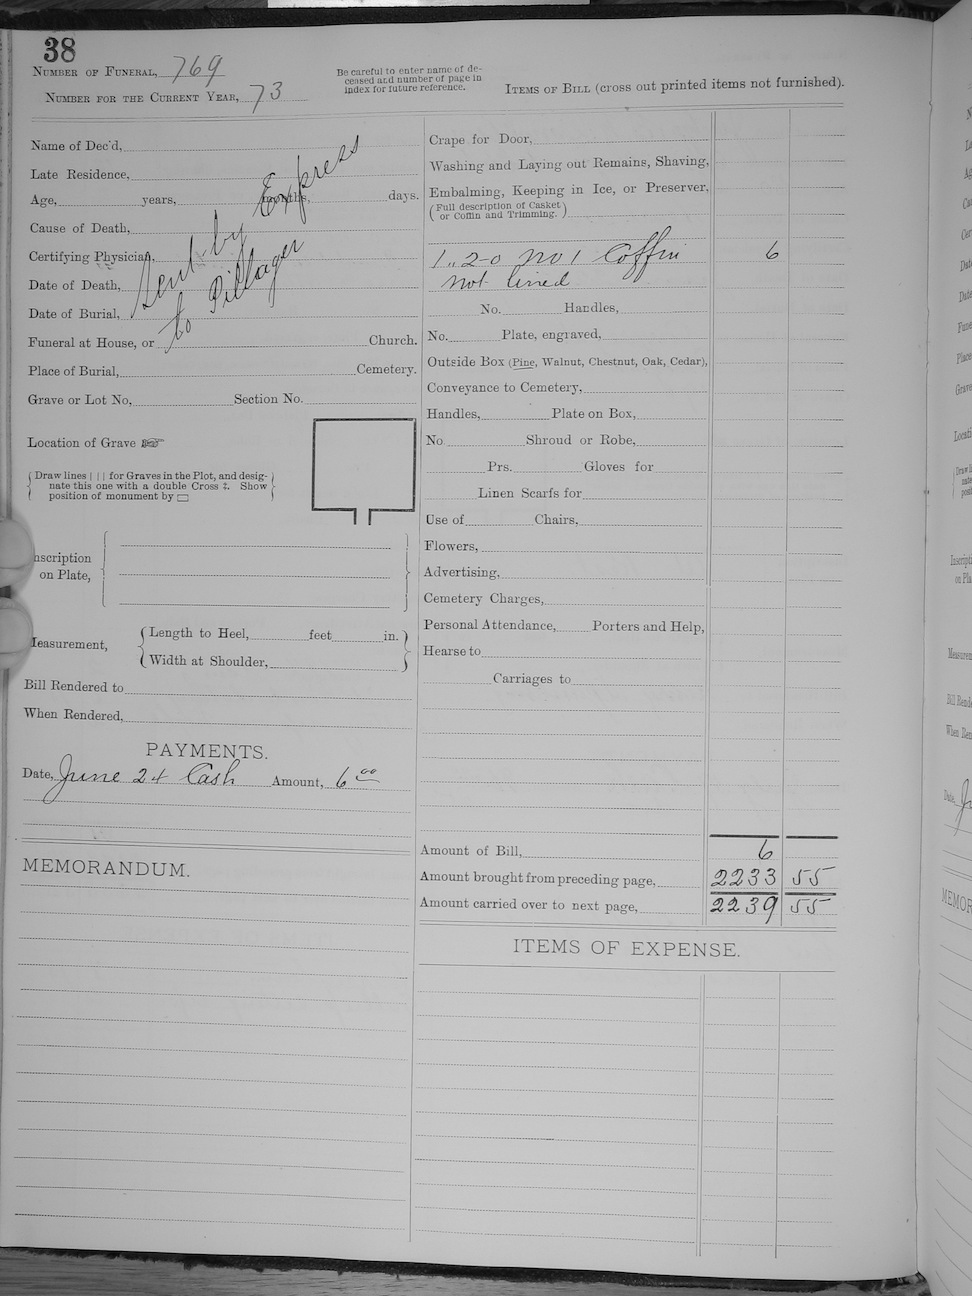 38
NUMBER OF FUNERAL, 769
NUMBER FOR THE CURRENT YEAR, 73
Be careful to enter name of de-
ceased and number of page in
index for future reference.
ITEMS OF BILL (cross out printed items not furnished).
Name of Dec'd,
Late Residence,
Age, years, months, days.
Cause of Death,
Certifying Physician,
Date of Death,
Date of Burial,
Funeral at House, or Church.
Place of Burial, Cemetery.
Grave or Lot No, Section No.
Sent by Express
to Pillager
Location of Grave ☞
Draw lines | | | for Graves in the Plot, and desig-
nate this one with a double Cross ‡. Show
position of monument by ▭
nscription
on Plate,
Measurement,
Length to Heel, feet in.
Width at Shoulder,
Bill Rendered to
When Rendered,
PAYMENTS.
Date, June 24 Cash Amount, 6 00
MEMORANDUM.
Crape for Door,
Washing and Laying out Remains, Shaving,
Embalming, Keeping in Ice, or Preserver.
(Full description of Casket
or Coffin and Trimming.)
1 .. 2-0 No 1 Coffin 6
not lined
No. Handles,
No. Plate, engraved,
Outside Box (Pine, Walnut, Chestnut, Oak, Cedar),
Conveyance to Cemetery,
Handles, Plate on Box,
No Shroud or Robe,
Prs. Gloves for
Linen Scarfs for
Use of Chairs,
Flowers,
Advertising,
Cemetery Charges,
Personal Attendance, Porters and Help,
Hearse to
Carriages to
Amount of Bill, 6
Amount brought from preceding page, 2233 55
Amount carried over to next page, 2239 55
ITEMS OF EXPENSE.